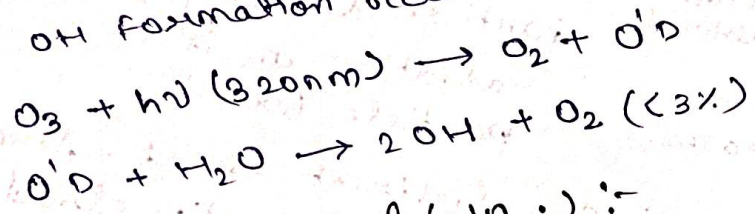 OH formation
O₃ + hν (320nm) → O₂ + O'D
O'D + H₂O → 2OH + O₂ (<3%)